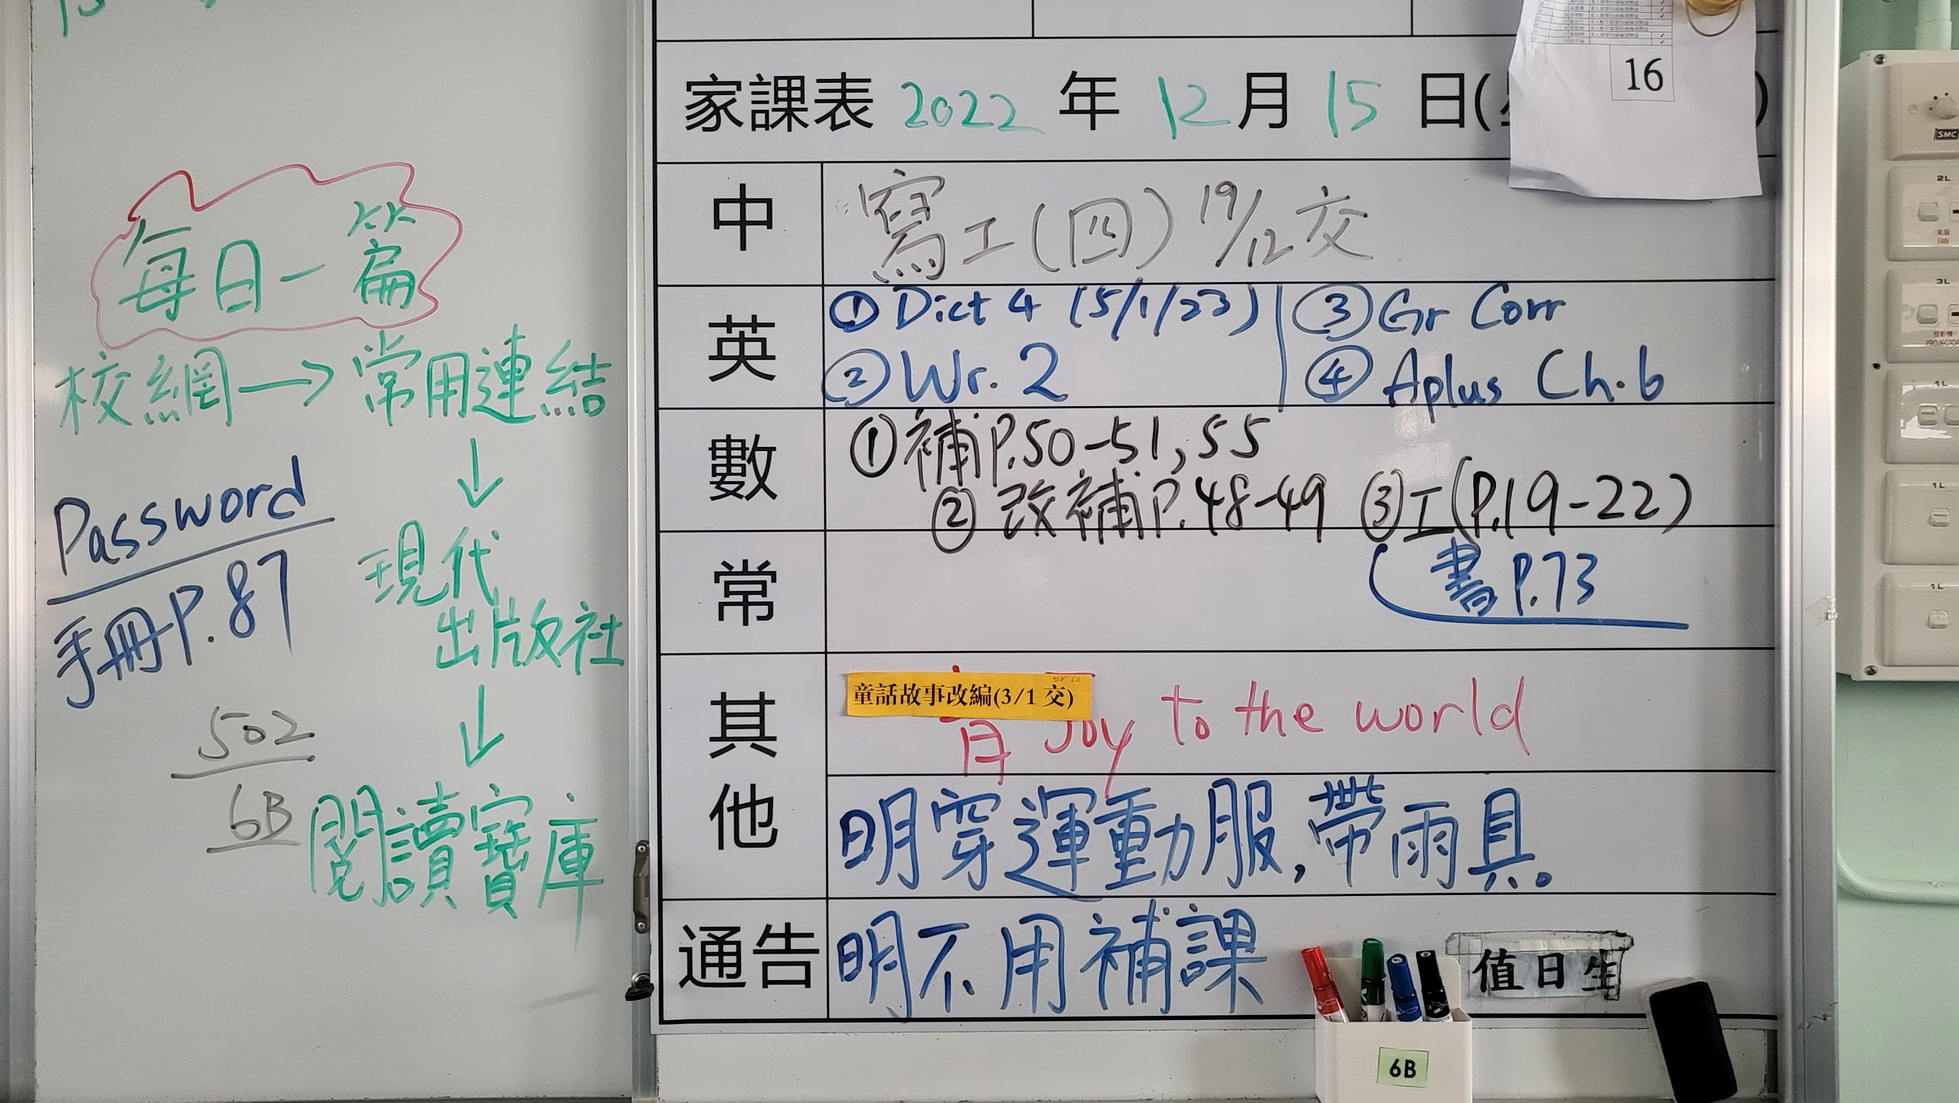 每日一篇
校網→常用連結
↓
現代
出版社
↓
閱讀寶庫
Password
手冊P.87
502
6B
16
家課表 2022 年 12 月 15 日(
)
中
寫工(四) 19/12 交
英
① Dict 4 (5/1/23)
② Wr. 2
③ Gr Corr
④ Aplus Ch.6
數
①補P.50-51, 55
②改補P.48-49 ③工(P.19-22)
常
書P.73
其他
童話故事改編(3/1 交)
音 Joy to the world
明穿運動服,帶雨具。
通告
明不用補課
值日生
6B
SMC
2L
FAN
3L
1L
1L
1L